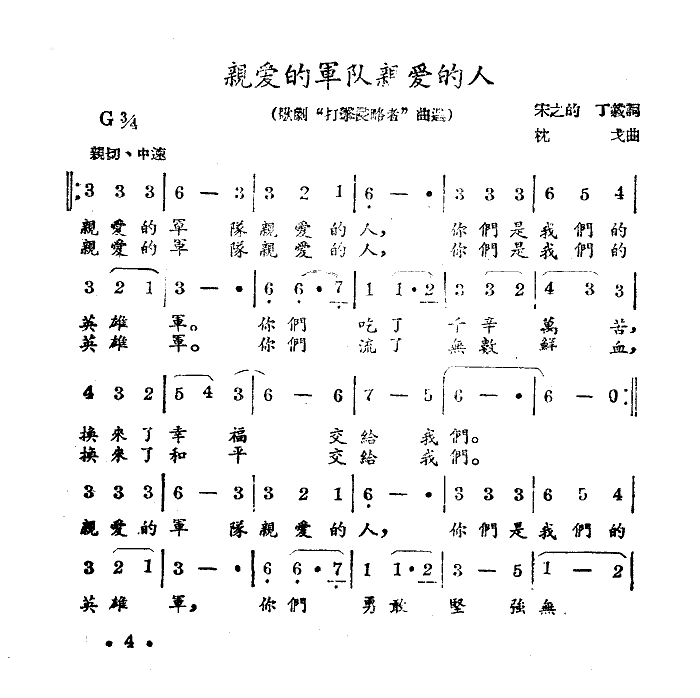 親爱的軍队親爱的人
(歌劇“打擊侵略者”曲選)
宋之的 丁毅詞
G 3/4
枕 戈曲
親切、中速
‖: 3 3 3 | 6 — 3 | 3 2 1 | 6 — · | 3 3 3 | 6 5 4 |
親愛的軍 隊親愛的人， 你們是我們的
親愛的軍 隊親愛的人， 你們是我們的
3 2 1 | 3 — · | 6 6 · 7 | 1 1 · 2 | 3 3 2 | 4 3 3 |
英雄軍。 你們 吃了 千辛萬苦，
英雄軍。 你們 流了 無數鮮血，
4 3 2 | 5 4 3 | 6 — 6 | 7 — 5 | 6 — · | 6 — 0 :‖
換來了幸福 交給我們。
換來了和平 交給我們。
3 3 3 | 6 — 3 | 3 2 1 | 6 — · | 3 3 3 | 6 5 4 |
親愛的軍 隊親愛的人， 你們是我們的
3 2 1 | 3 — · | 6 6 · 7 | 1 1 · 2 | 3 — 5 | 1 — 2 |
英雄軍， 你們 勇敢 堅強無
· 4 ·